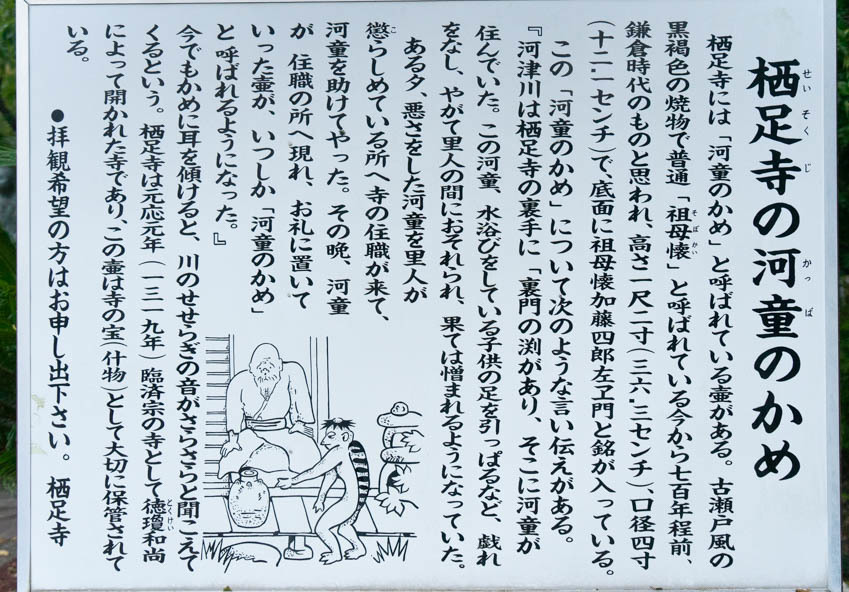 栖足寺の河童のかめ
せいそくじ かっぱ
栖足寺には「河童のかめ」と呼ばれている壷がある。古瀬戸風の
黒褐色の焼物で普通「祖母懐」と呼ばれている今から七百年程前、
そぼかい
鎌倉時代のものと思われ、高さ一尺二寸(三六.三センチ)、口径四寸
(十二.一センチ)で、底面に祖母懐加藤四郎左ヱ門と銘が入っている。
この「河童のかめ」について次のような言い伝えがある。
『河津川は栖足寺の裏手に「裏門の渕があり、そこに河童が
住んでいた。この河童、水浴びをしている子供の足を引っぱるなど、戯れ
をなし、やがて里人の間におそれられ、果ては憎まれるようになっていた。
ある夕、悪さをした河童を里人が
懲らしめている所へ寺の住職が来て、
こ
河童を助けてやった。その晩、河童
が 住職の所へ現れ、お礼に置いて
いった壷が、いつしか「河童のかめ」
と 呼ばれるようになった。』
今でもかめに耳を傾けると、川のせせらぎの音がさらさらと聞こえて
くるという。栖足寺は元応元年(一三一九年)臨済宗の寺として徳瓊和尚
とくけい
によって開かれた寺であり、この壷は寺の宝(什物)として大切に保管されて
いる。
●拝観希望の方はお申し出下さい。 栖足寺